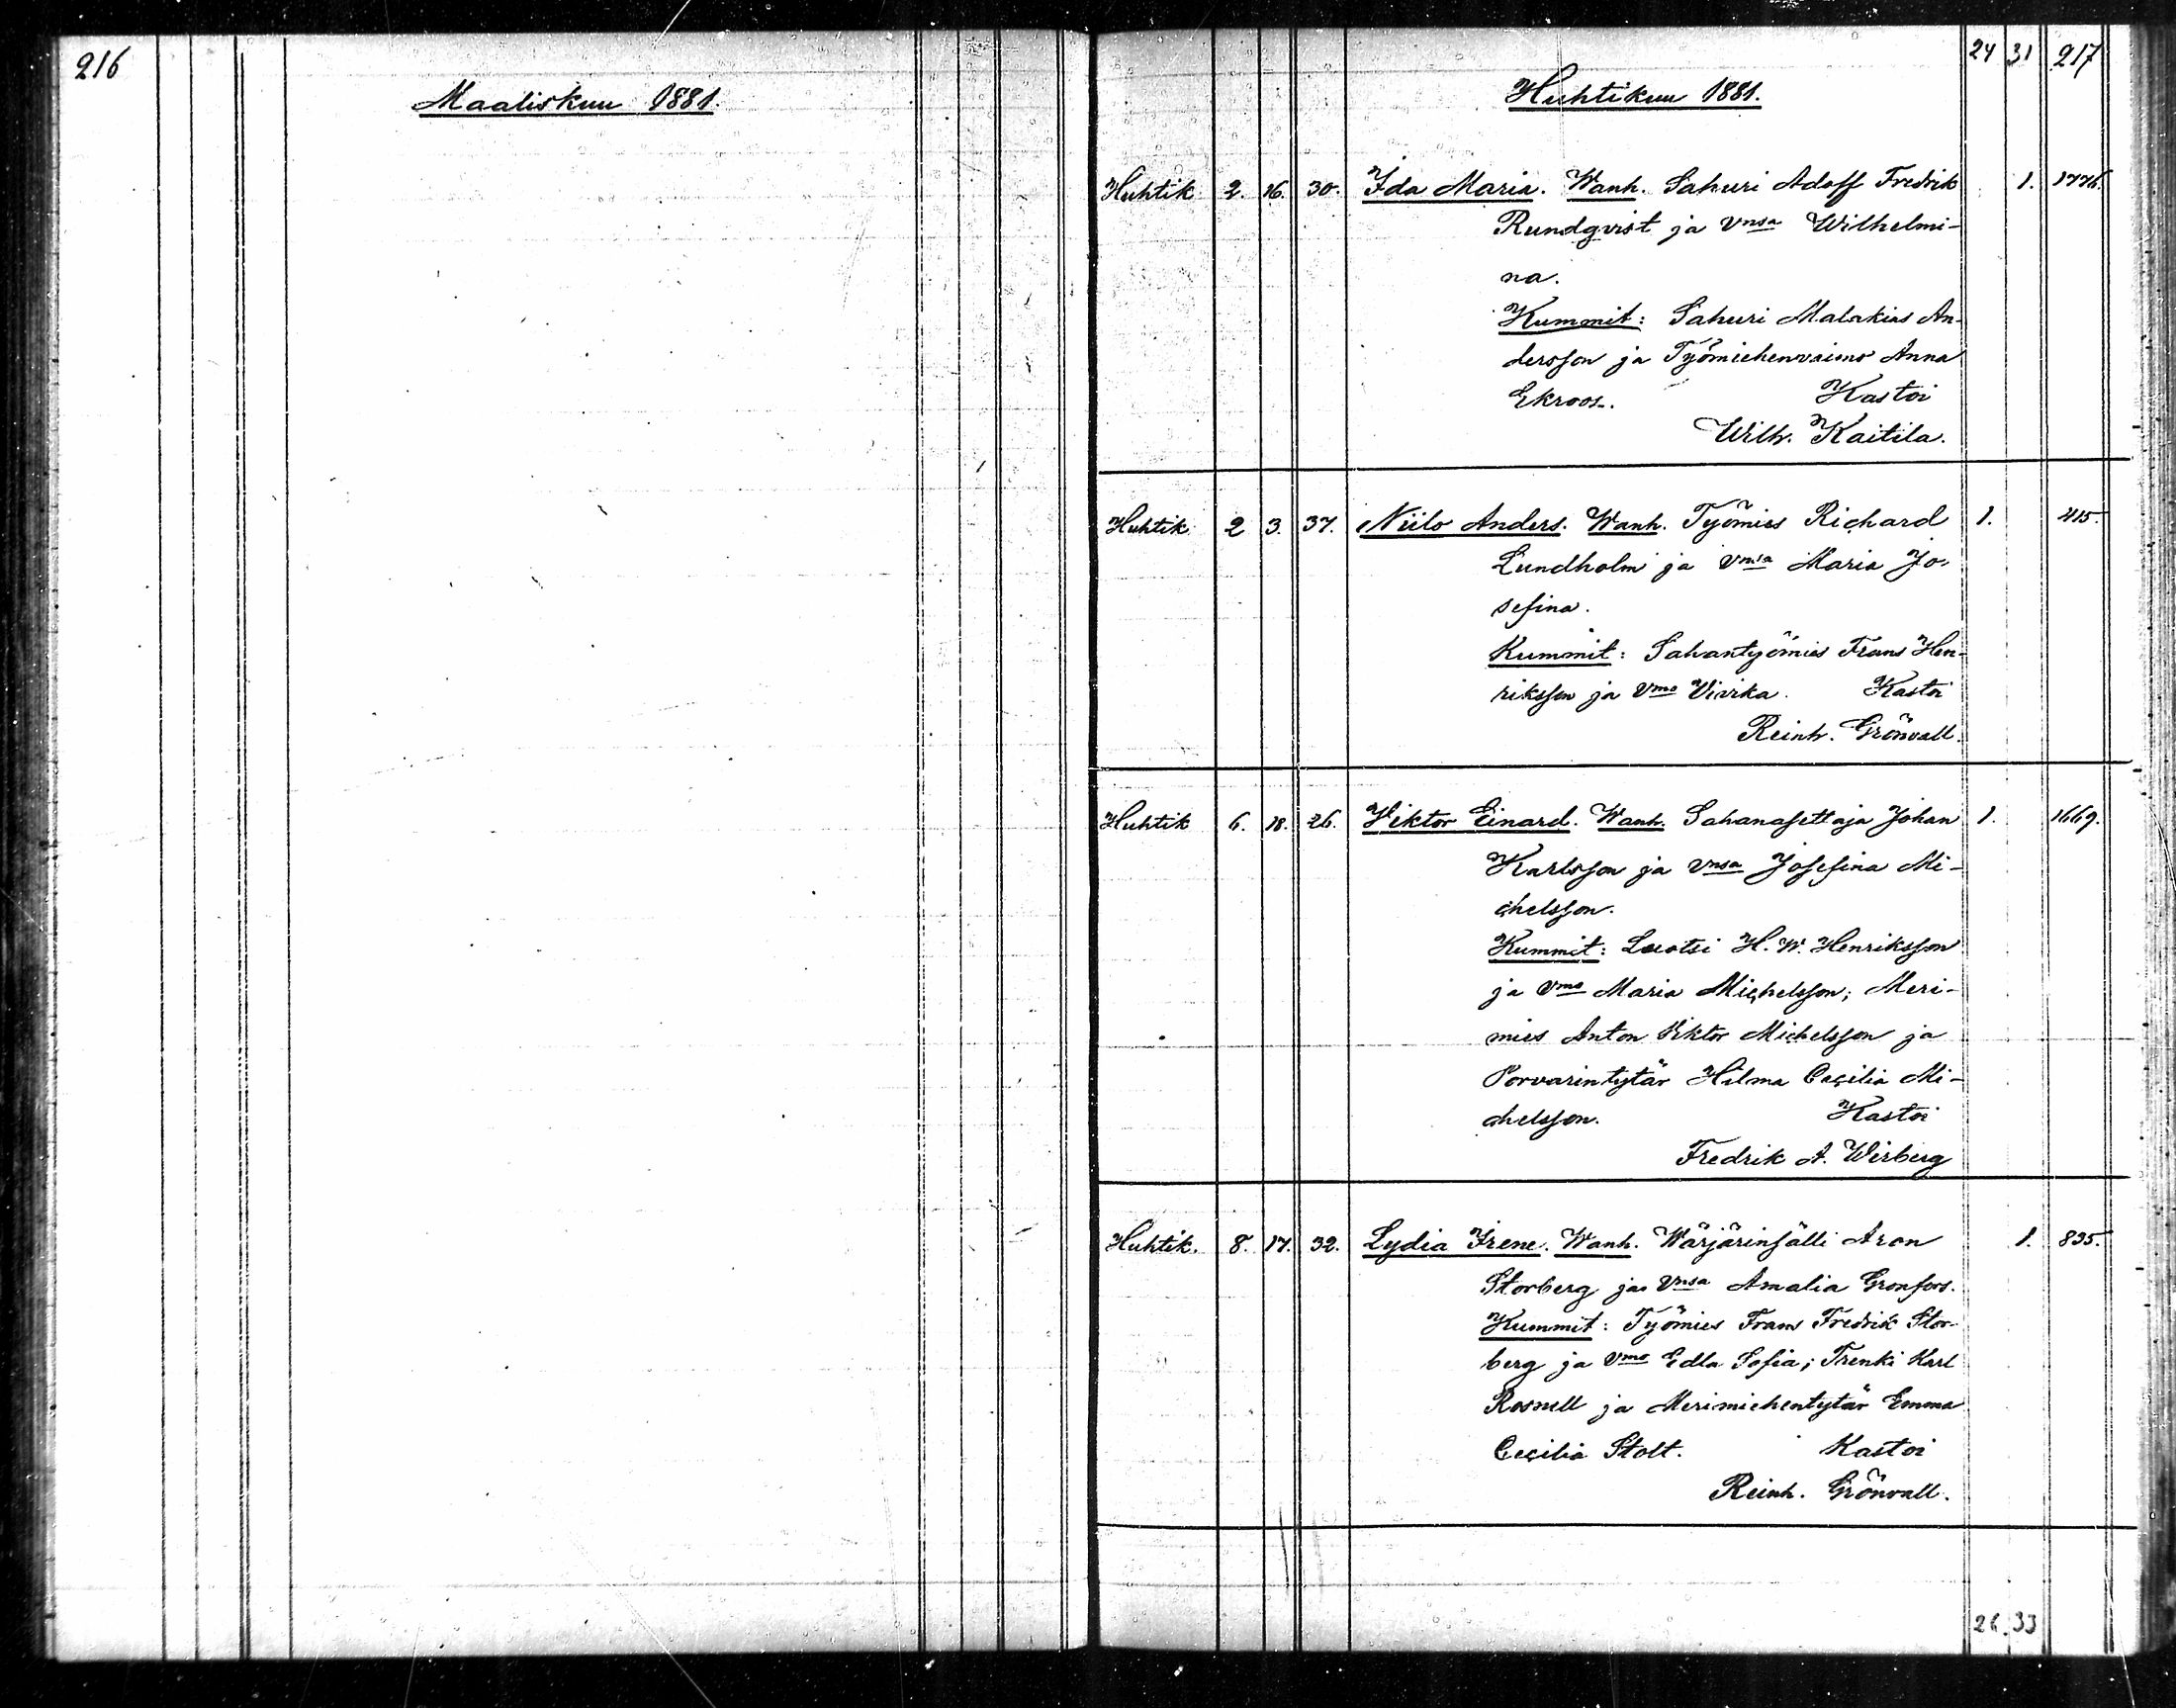 216
Maaliskuu 1881.
24 31 217
Huhtikuu 1881.
Huhtik 2. 16. 30. Ida Maria. Wanh. Sahuri Adolf Fredrik 1. 1776.
Rundqvist ja vnsa Wilhelmi-
na.
Kummit: Sahuri Malakias An-
dersson ja Työmiehenvaimo Anna
Ekroos. Kastoi
Wilh. Kaitila.
Huhtik 2 3. 37. Niilo Anders. Wanh. Työmies Richard 1. 415.
Lundholm ja vnsa Maria Jo-
sefina.
Kummit: Sahantyömies Frans Hen-
riksson ja vmo Viivika. Kastoi
Reinh. Grönvall.
Huhtik 6. 18. 26. Viktor Einard. Wanh. Sahanasettaja Johan 1. 1669.
Karlsson ja vnsa Josefina Mi-
chelsson.
Kummit: Luotsi H. W. Henriksson
ja vmo Maria Michelsson; Meri-
mies Anton Viktor Michelsson ja
Porvarintytär Hilma Cecilia Mi-
chelsson. Kastoi
Fredrik A. Wirberg
Huhtik. 8. 17. 32. Lydia Irene. Wanh. Wärjärinsälli Aron 1. 835.
Storberg ja vnsa Amalia Gronfors.
Kummit: Työmies Frans Fredrik Stor-
berg ja vmo Edla Sofia; Trenki Karl
Rosnell ja Merimiehentytär Emma
Cecilia Stolt. Kastoi
Reinh. Grönvall.
26. 33